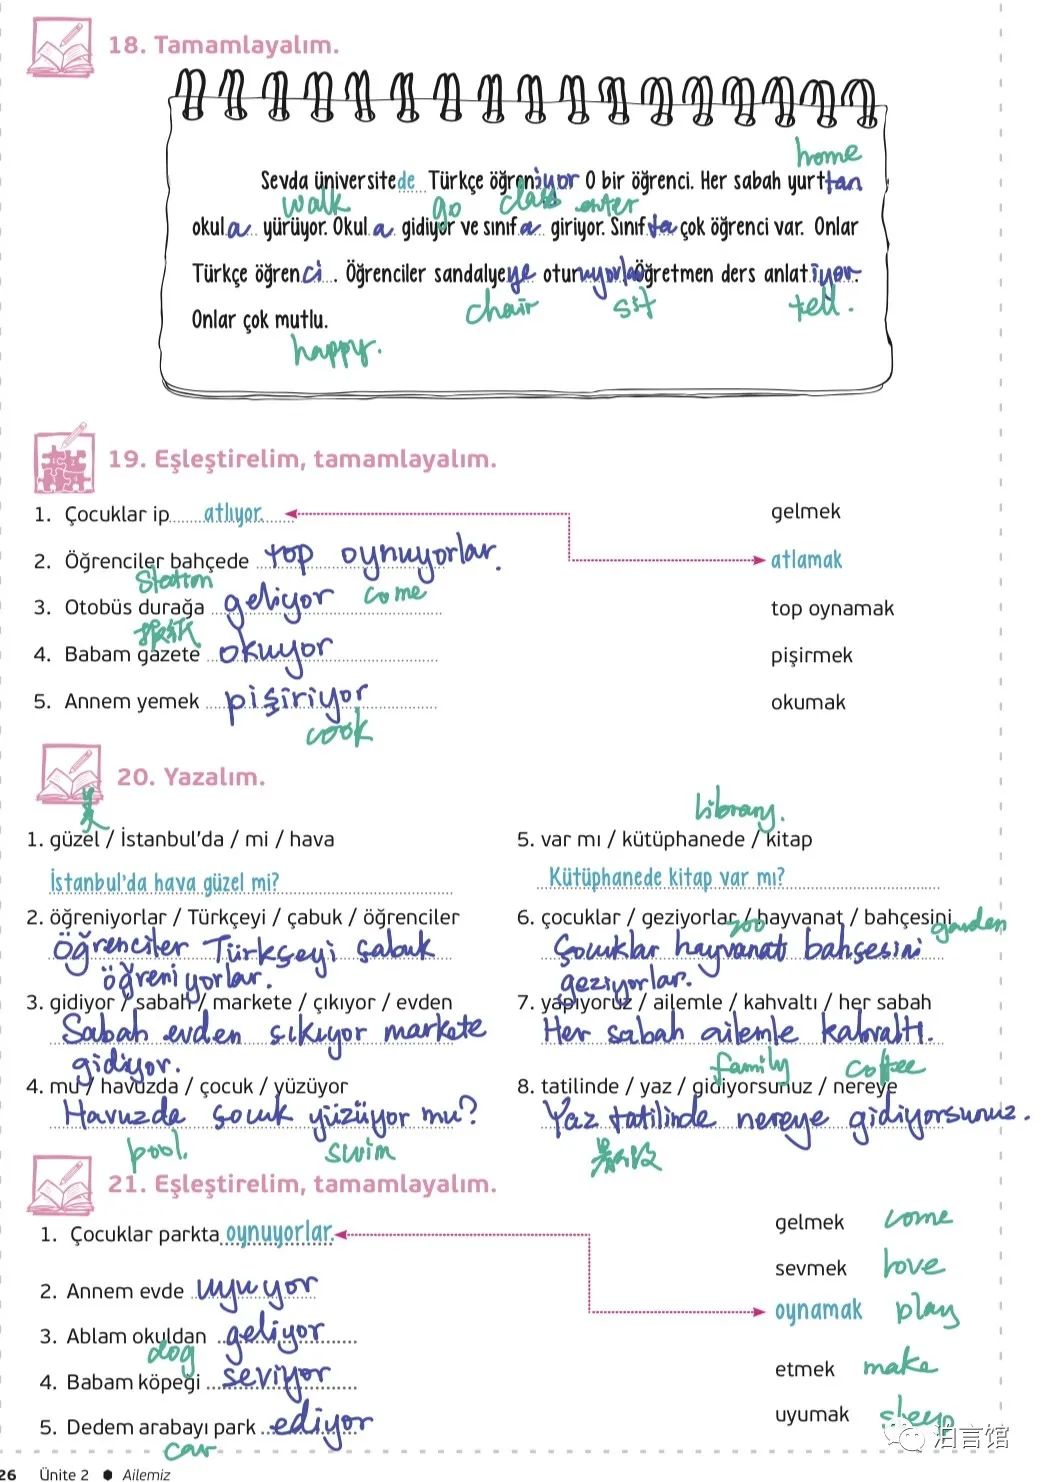 18. Tamamlayalım.
home
Sevda üniversitede Türkçe öğreniyor O bir öğrenci. Her sabah yurttan
walk go class enter
okula yürüyor. Okula gidiyor ve sınıfa giriyor. Sınıfta çok öğrenci var. Onlar
Türkçe öğrenci. Öğrenciler sandalyeye oturuyorlar Öğretmen ders anlatıyor.
chair sit tell.
Onlar çok mutlu.
happy.
19. Eşleştirelim, tamamlayalım.
1. Çocuklar ip atlıyor. gelmek
2. Öğrenciler bahçede top oynuyorlar. atlamak
station come
3. Otobüs durağa geliyor top oynamak
报纸
4. Babam gazete okuyor pişirmek
5. Annem yemek pişiriyor okumak
cook
20. Yazalım.
美
1. güzel / İstanbul'da / mi / hava
İstanbul'da hava güzel mi?
2. öğreniyorlar / Türkçeyi / çabuk / öğrenciler
Öğrenciler Türkçeyi çabuk
öğreniyorlar.
3. gidiyor / sabah / markete / çıkıyor / evden
Sabah evden çıkıyor markete
gidiyor.
4. mu / havuzda / çocuk / yüzüyor
Havuzda çocuk yüzüyor mu?
pool. swim
library.
5. var mı / kütüphanede / kitap
Kütüphanede kitap var mı?
6. çocuklar / geziyorlar / hayvanat / bahçesini
zoo garden
Çocuklar hayvanat bahçesini
geziyorlar.
7. yapıyoruz / ailemle / kahvaltı / her sabah
Her sabah ailemle kahvaltı.
family coffee
8. tatilinde / yaz / gidiyorsunuz / nereye
Yaz tatilinde nereye gidiyorsunuz.
21. Eşleştirelim, tamamlayalım.
1. Çocuklar parkta oynuyorlar. gelmek come
2. Annem evde uyuyor sevmek love
3. Ablam okuldan geliyor oynamak play
dog
4. Babam köpeği seviyor etmek make
5. Dedem arabayı park ediyor uyumak sleep
car
泊言馆
26 Ünite 2 Ailemiz